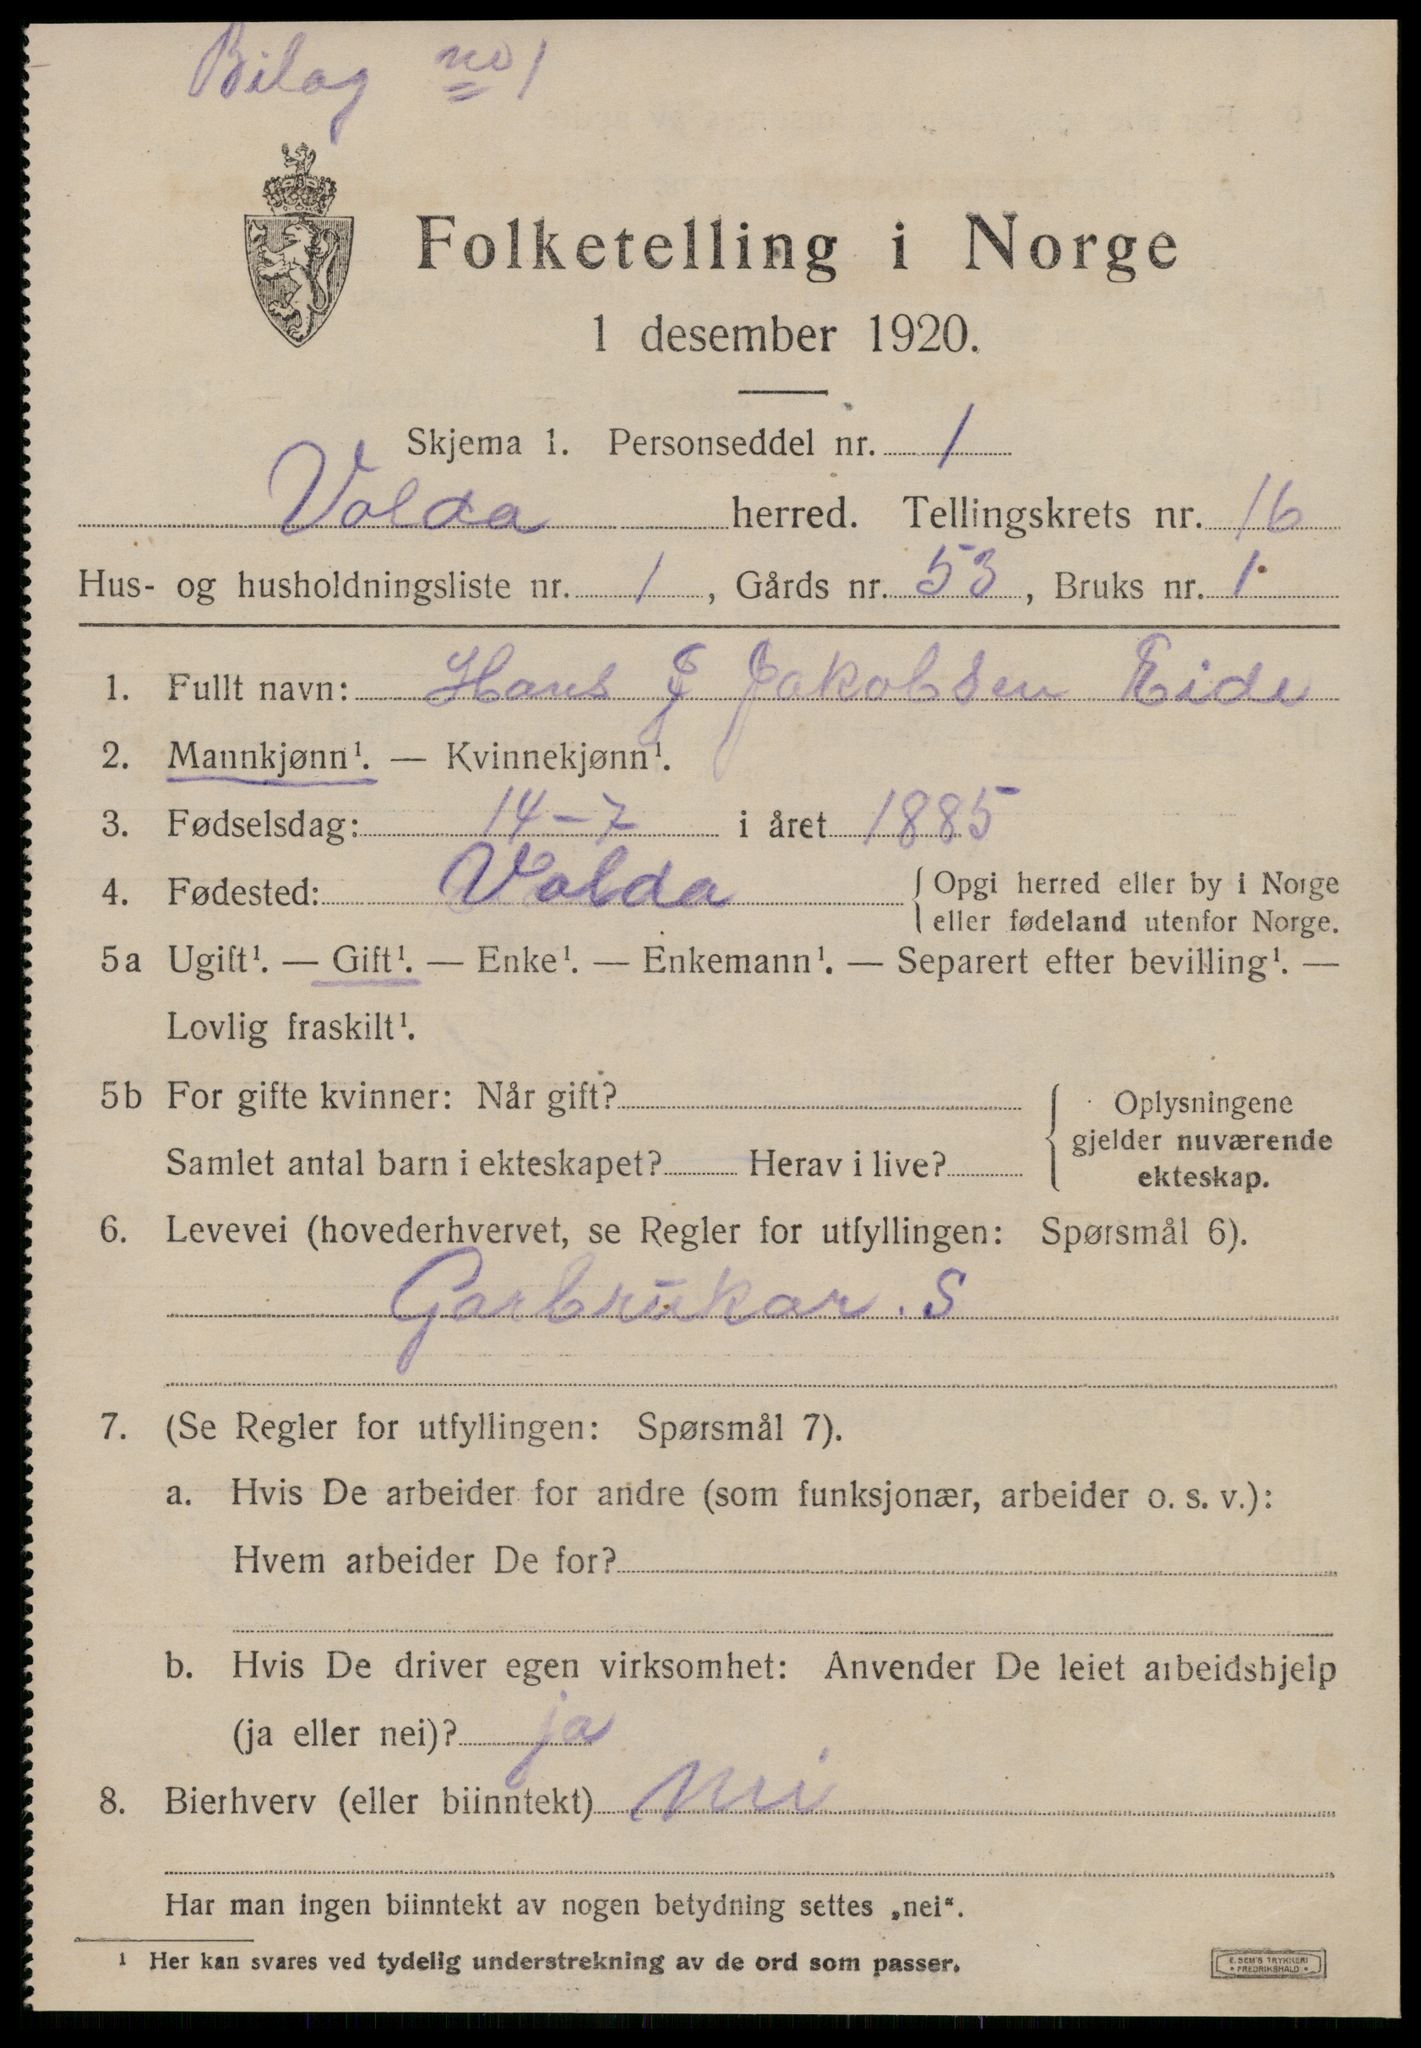 Bilag no 1
Folketelling i Norge
1 desember 1920.
Skjema 1. Personseddel nr. 1
Volda herred. Tellingskrets nr. 16
Hus- og husholdningsliste nr. 1, Gårds nr. 53, Bruks nr. 1.
1. Fullt navn: Hans J Jakobsen Eide
2. Mannkjønn¹. — Kvinnekjønn¹.
3. Fødselsdag: 14-7 i året 1885
4. Fødested: Volda { Opgi herred eller by i Norge
eller fødeland utenfor Norge.
5a Ugift¹. — Gift¹. — Enke¹. — Enkemann¹. — Separert efter bevilling¹. —
Lovlig fraskilt¹.
5b For gifte kvinner: Når gift? { Oplysningene
gjelder nuværende
Samlet antal barn i ekteskapet? Herav i live?
ekteskap.
6. Levevei (hovederhvervet, se Regler for utfyllingen: Spørsmål 6).
Garbrukar. S
7. (Se Regler for utfyllingen: Spørsmål 7).
a. Hvis De arbeider for andre (som funksjonær, arbeider o. s. v.):
Hvem arbeider De for?
b. Hvis De driver egen virksomhet: Anvender De leiet arbeidshjelp
(ja eller nei)? ja
8. Bierhverv (eller biinntekt) nei
Har man ingen biinntekt av nogen betydning settes „nei“.
¹ Her kan svares ved tydelig understrekning av de ord som passer.
E. SEM'S TRYKKERI
• FREDRIKSHALD •